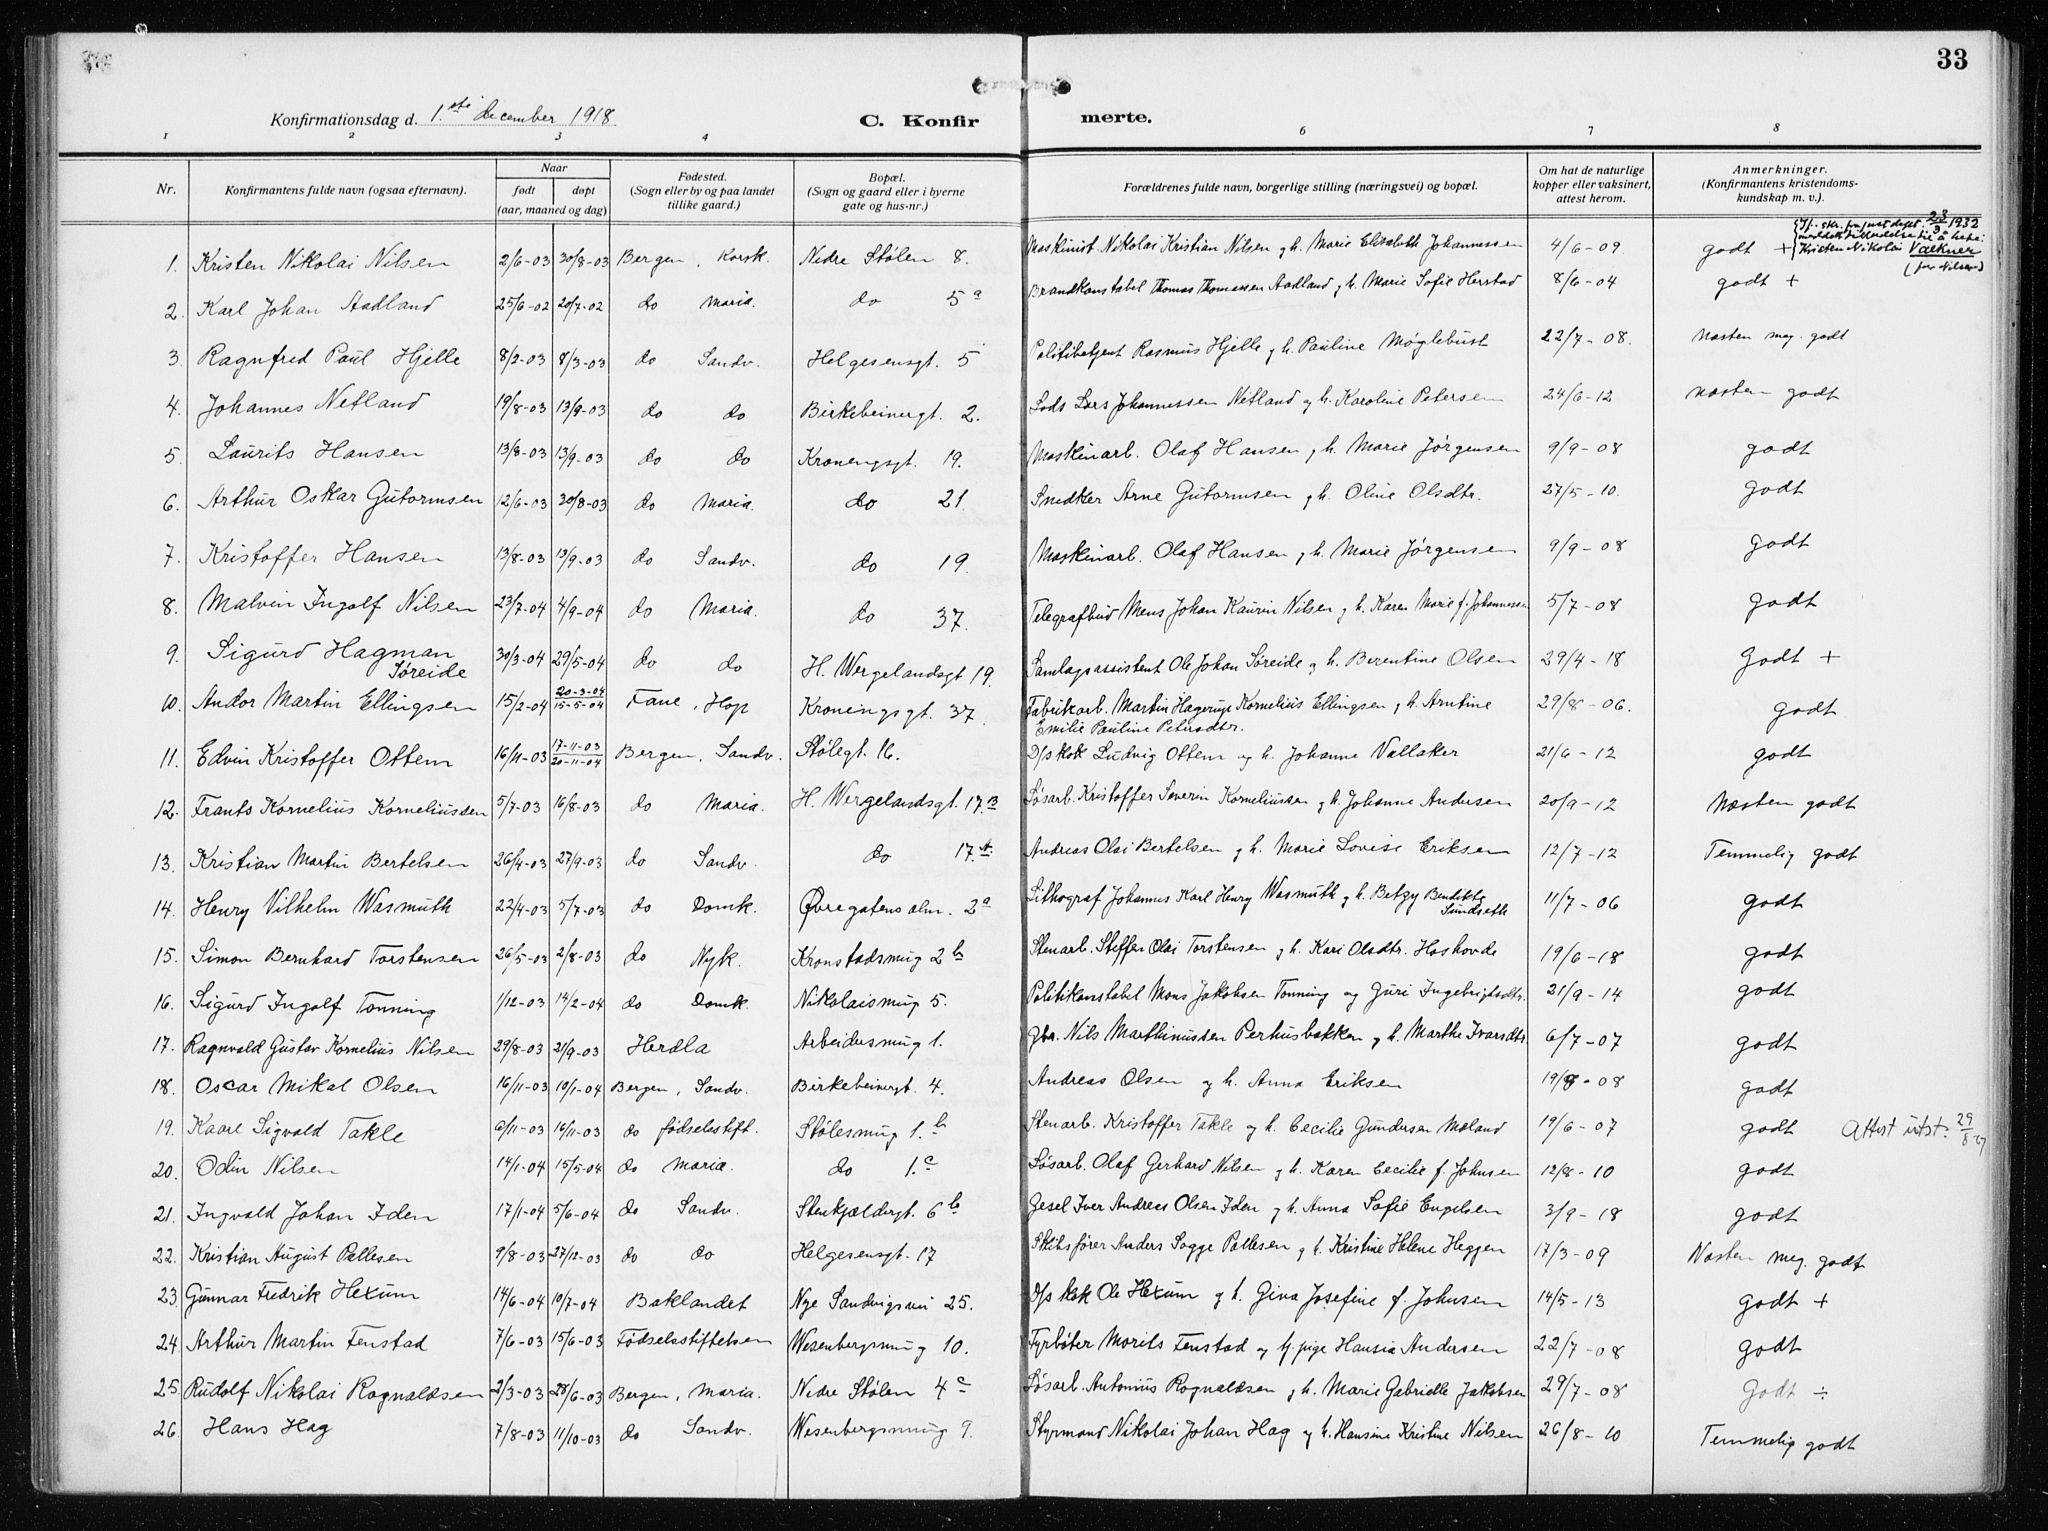 33
Konfirmationsdag d. 1.ste december 1918
C. Konfirmerte.
1 2 3 4 6 7 8
Nr.
Konfirmantens fulde navn (ogsaa efternavn).
Naar
født døpt
(aar, maaned og dag)
Fødested.
(Sogn eller by og paa landet
tillike gaard.)
Bopæl.
(Sogn og gaard eller i byerne
gate og hus-nr.)
Forældrenes fulde navn, borgerlige stilling (næringsvei) og bopæl.
Om hat de naturlige
kopper eller vaksinert,
attest herom.
Anmerkninger.
(Konfirmantens kristendoms-
kundskap m. v.).
1. Kristen Nikolai Nilsen 2/6-03 30/8-03 Bergen, Korsk. Nedre Stølen 8. Maskinist Nikolai Kristian Nilsen og h. Marie Elisabeth Johannessen 4/6-09 godt +
23/3 1932
Kristen Nikolai Valkner
(før Nilsen)
2. Karl Johan Aadland 25/6-02 20/7-02 do Maria. do 5a Brandkonstabel Thomas Thomassen Aadland og h. Marie Sofie Herstad 8/6-04 godt +
3. Ragnfred Paul Hjelle 8/2-03 8/3-03 do Sandv. Helgesensgt. 5 Politibetjent Rasmus Hjelle og h. Pauline Møglebust 22/7-08. Næsten meg. godt
4. Johannes Netland 19/8-03 13/9-03 do do Birkebeinergt. 2. Lods Lars Johannessen Netland og h. Karoline Petersen 24/6-12 næsten godt
5. Laurits Hansen 13/8-03 13/9-03 do do Kroningsgt. 19. Maskinarb. Olaf Hansen og h. Marie Jørgensen 9/9-08 godt
6. Arthur Oskar Gutormsen 12/6-03 30/8-03 do Maria. do 21. Snedker Arne Gutormsen og h. Oline Olsdtr. 27/5-10. godt
7. Kristoffer Hansen 13/8-03 13/9-03 do Sandv. do 19. Maskinarb. Olaf Hansen og h. Marie Jørgensen 9/9-08 godt
8. Malvin Ingolf Nilsen 23/7-04 4/9-04 do Maria. do 37. Telegrafbud Mens Johan Kaurin Nilsen og h. Karen Marie f. Johannessen 5/7-08 godt
9. Sigurd Hagman Søreide 30/3-04 29/5-04 do do H. Wergelandsgt 19. Samlagsassistent Ole Johan Søreide og h. Berentine Olsen 29/4-18 Godt +
10. Andor Martin Ellingsen 15/2-04 20-3-04 15-5-04 Fane, Hop Kroningsgt. 37. Fabrikarb. Martin Hagerup Kornelius Ellingsen og h. Arntine
Emilie Pauline Petersdtr. 29/8-06. godt
11. Edvin Kristoffer Ottem 16/11-03 17-11-03 20-11-04 Bergen, Sandv. Stølegt. 16. D/s kok Ludvig Ottem og h. Johanne Vallaker 21/6-12 godt
12. Frants Kornelius Korneliussen 5/7-03 16/8-03 do Maria. H. Wergelandsgt. 17.B Løsarb. Kristoffer Severin Korneliussen og h. Johanne Andersen 20/9-12 Næsten godt
13. Kristian Martin Bertelsen 26/4-03 27/9-03 do Sandv. do 17.A Andreas Olai Bertelsen og h. Marie Lovise Eriksen 12/7-12 Temmelig godt
14. Henry Vilhelm Wasmuth 22/4-03 5/7-03 do Domk. Øvregatens alm. 2a Lithograf Johannes Karl Henry Wasmuth og h. Betzy Bendikte
Sundseth 11/7-06 godt
15. Simon Bernhard Torstensen 26/5-03 2/8-03 do Nyk. Kronstadsmug 2b Stenarb. Steffen Olai Torstensen og h. Kari Olsdtr. Hoshovde 19/6-18 godt
16. Sigurd Ingolf Tonning 1/12-03 14/2-04 do Domk. Nikolaismug 5. Politikonstabel Mons Jakobsen Tonning og Guri Ingebrigtsdtr. 21/9-14 godt
17. Ragnvald Gustav Kornelius Nilsen 29/8-03 21/9-03 Herdla Arbeidersmug 1. Gbr. Nils Marthinussen Perhusbakken og h. Marthe Ivarsdtr. 6/7-07 godt
18. Oscar Mikal Olsen 16/11-03 10/1-04 Bergen, Sandv. Birkebeinergt. 4. Andreas Olsen og h. Anna Eriksen 19/8-08 godt
19. Kaare Sigvald Takle 6/11-03 16/11-03 do fødselsstift. Stølesmug 1.b Stenarb. Kristoffer Takle og h. Cecilie Gundersen Mæland 19/6-07 godt Attest utst. 29/8 27
20. Odin Nilsen 14/1-04 15/5-04 do Maria. do 1.c Løsarb. Olaf Gerhard Nilsen og h. Karen Cecilie f. Johnsen 12/8-10 godt
21. Ingvald Johan Iden 17/1-04 5/6-04 do Sandv. Stenkjældergt. 6b Gesel Iver Andreas Olsen Iden og h. Anna Sofie Engelsen 3/9-18 godt
22. Kristian August Pallesen 9/8-03 27/12-03 do do Helgesensgt. 17 Skibsfører Anders Sogge Pallesen og h. Kristine Helene Heggen 17/3-09 Næsten meg. godt
23. Gunnar Fredrik Hexum 14/6-04 10/7-04 Baklandet Nye Sandvigsvei 25. D/s kok Ole Hexum og h. Gina Josefine f. Johnsen 14/5-13 godt +
24. Arthur Martin Fenstad 7/6-03 15/6-03 Fødselsstiftelsen Wesenbergsmug 10. Fyrbøter Morits Fenstad og tj. pige Hansia Andersen 22/7-08 godt
25. Rudolf Nikolai Rognaldsen 2/3-03 28/6-03 Bergen, Maria. Nedre Stølen 4c Løsarb. Antonius Rognaldsen og h. Marie Gabrielle Jakobsen 29/7-08 Godt ÷
26. Hans Hag 7/8-03 11/10-03 do Sandv. Wesenbergsmug 9. Styrmand Nikolai Johan Hag og h. Hansine Kristine Nilsen 26/8-10 Temmelig godt